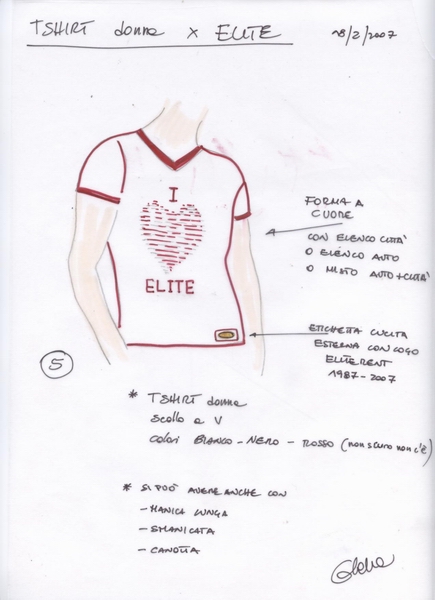 TSHIRT donna x ELITE
28/2/2007
I
ELITE
FORMA A
CUORE
CON ELENCO CITTÀ
O ELENCO AUTO
O MISTO AUTO+CITTÀ
ETICHETTA CUCITA
ESTERNA CON LOGO
ELITERENT
1987-2007
5
* TSHIRT donna
scollo a V
colori BIANCO - NERO - ROSSO (non scuro non c'è)
* SI PUÒ AVERE ANCHE CON
- MANICA LUNGA
- SMANICATA
- CANOTTA